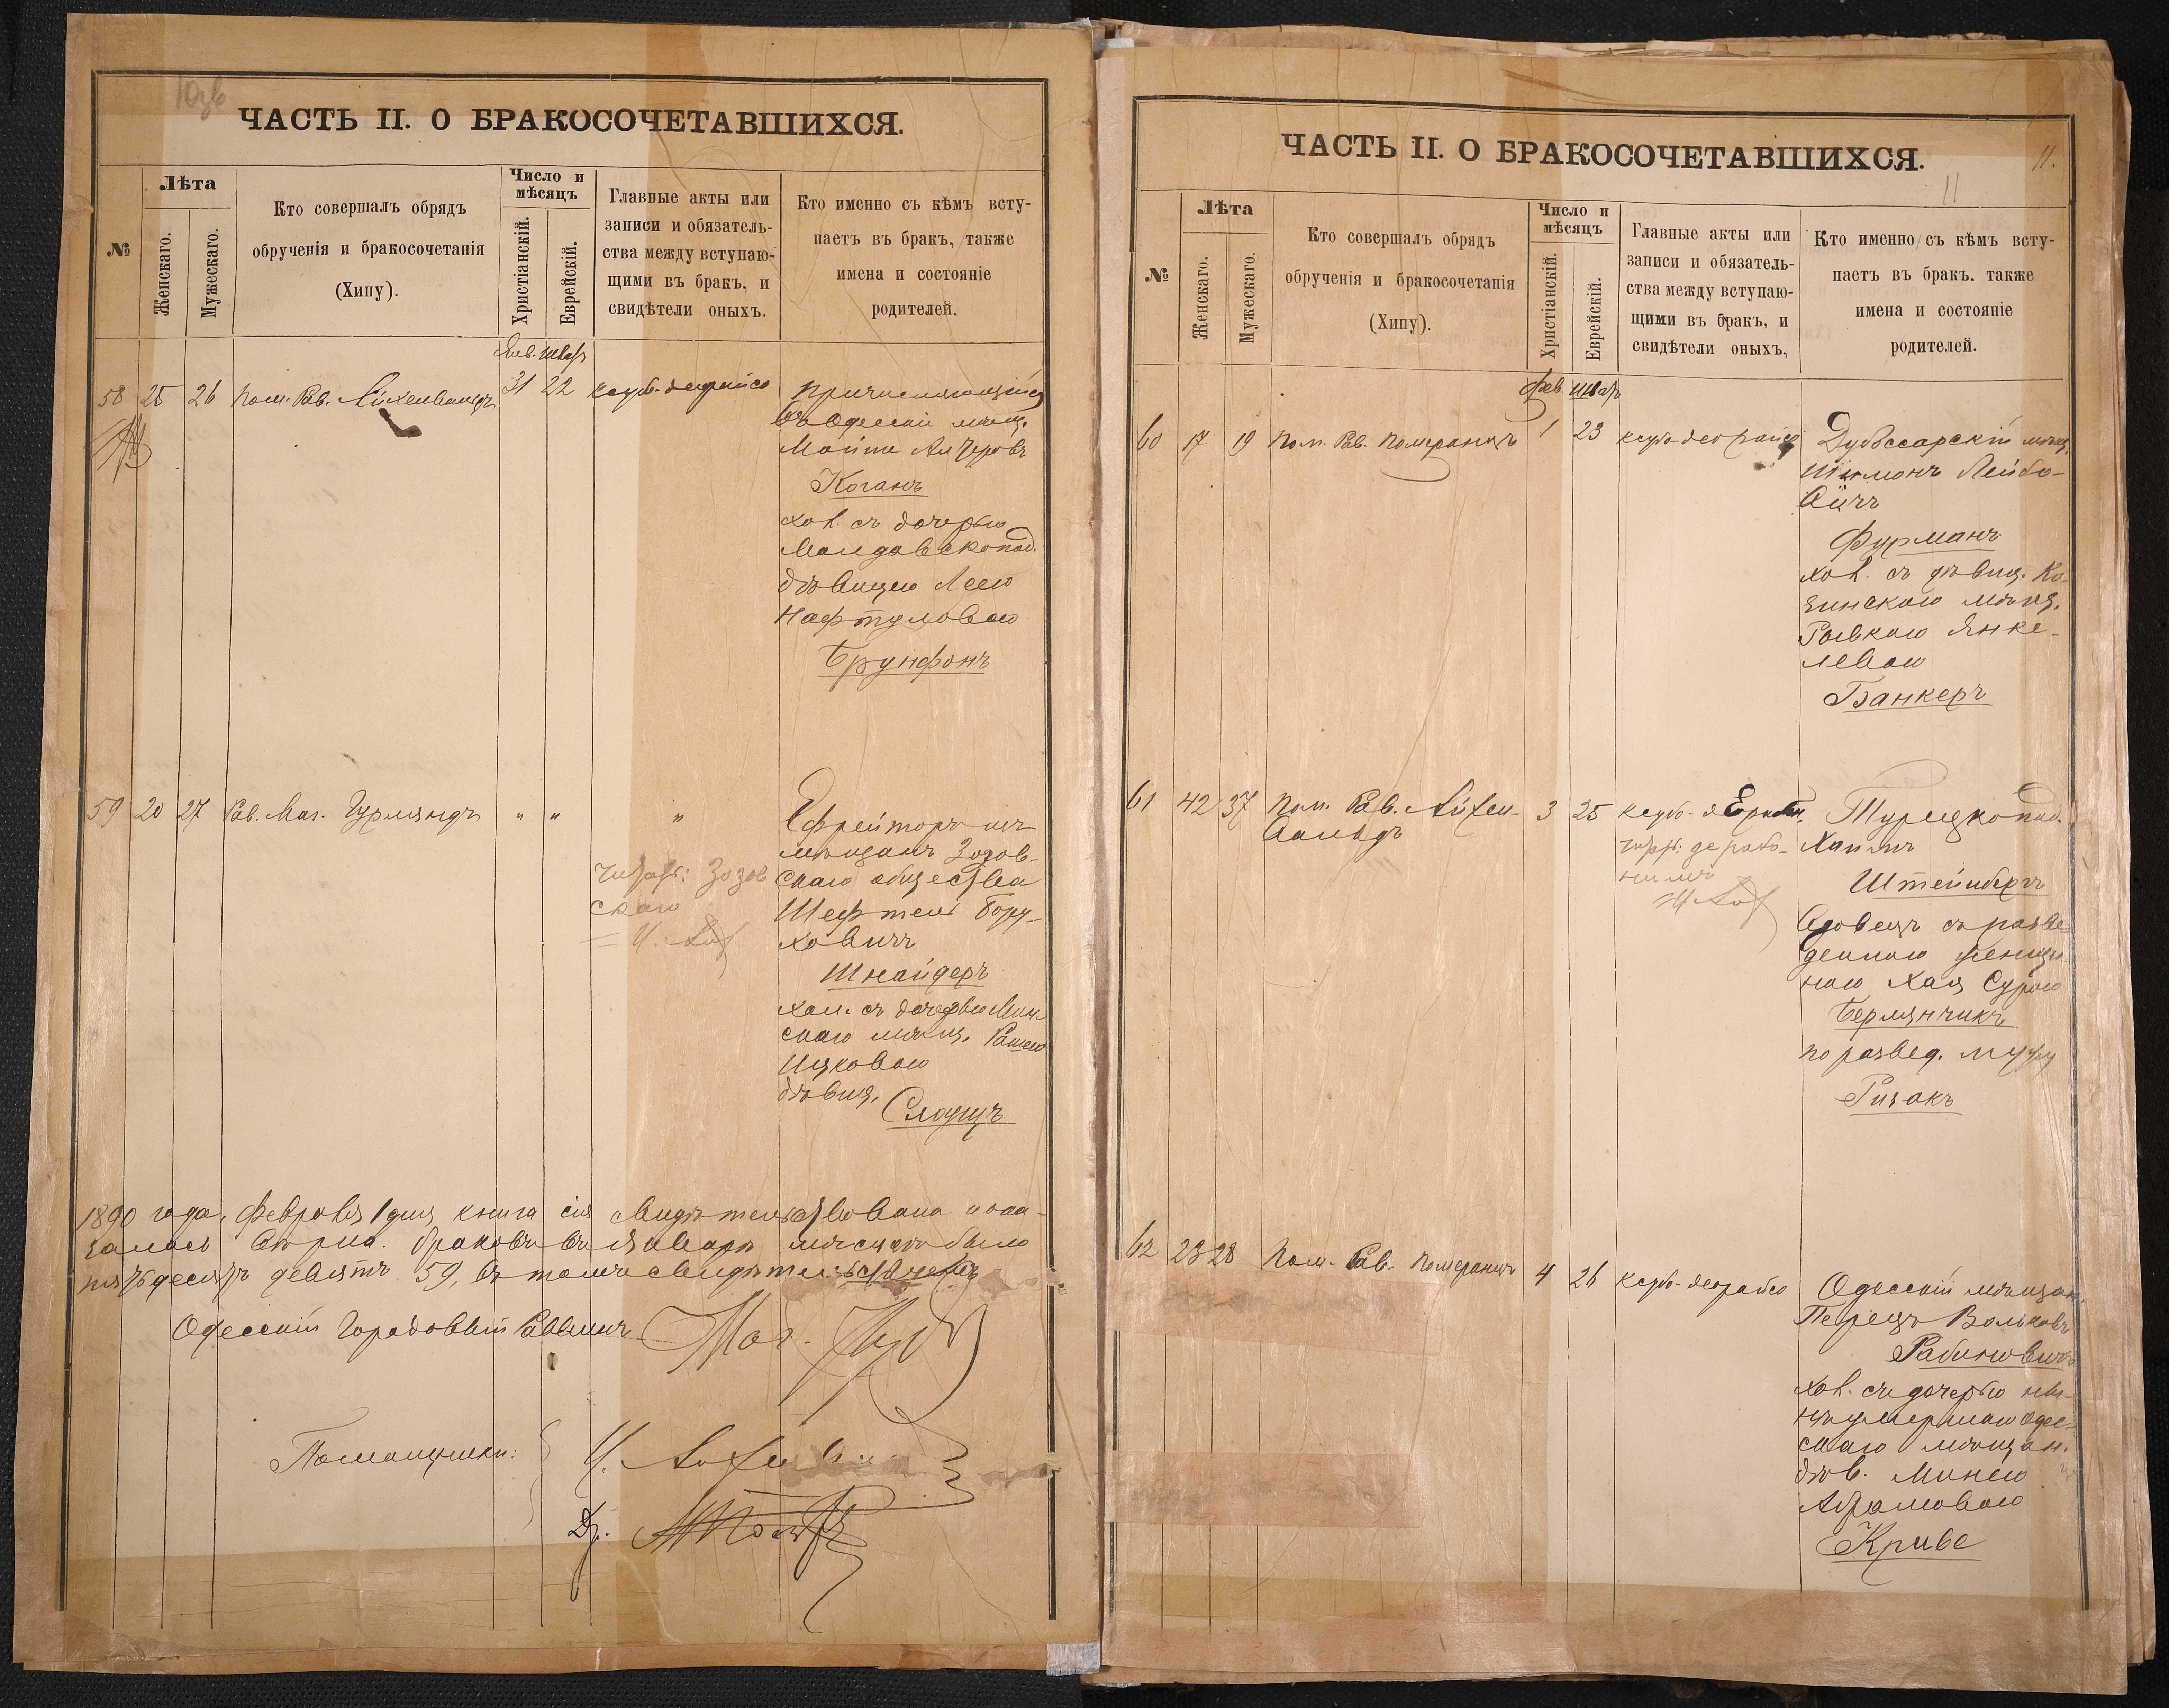 ЧАСТЬ II. О БРАКОСОЧЕТАВШИХСЯ.
№
Лѣта
Женскаго.
Мужескаго.
Кто совершалъ обрядъ
обрученія и бракосочетанія
(Хипу).
Число и
мѣсяцъ
Христіанскій.
Еврейскій.
Главные акты или
записи и обязатель-
ства между вступаю-
щими въ бракъ, и
свидѣтели оныхъ.
Кто именно съ кѣмъ всту-
паетъ въ бракъ, также
имена и состояніе
родителей.
Янв. шват
58 25 26 Пом. Рав. Айхенвальдъ 31 22 кеуб.-деорайсо
Причисляющійся
въ Одесскіе мѣщ.
Мойше Алтеровъ
Коганъ
хол. съ дочерью
Молдавскопод.
дѣвицею Леею
Нафтуловою
Брунфонъ
59 20 27 Рав. Маг. Гурляндъ " " "
Ефрейторъ изъ
мѣщанъ Зозов-
скаго общества
Шефтель Бору-
ховичъ
Шнайдеръ
хол. съ дочерью Мин-
скаго мѣщ. Рашею
Ицковою
дѣвиц.
Слуцкъ
Зозов
скаго
1890 года, Февраля 1 дня книга сія свидѣтельствована пока-
залась вѣрна. браковъ въ Январѣ мѣсяцѣ было
пятьдесятъ девять 59, въ томъ свидѣтельствуемъ
Одесскій Городовый Раввинъ Маг.
Помощники:
Др.
ЧАСТЬ II. О БРАКОСОЧЕТАВШИХСЯ.
11.
11
№
Лѣта
Женскаго.
Мужескаго.
Кто совершалъ обрядъ
обрученія и бракосочетанія
(Хипу).
Число и
мѣсяцъ
Христіанскій.
Еврейскій.
Главные акты или
записи и обязатель-
ства между вступаю-
щими въ бракъ, и
свидѣтели оныхъ,
Кто именно съ кѣмъ всту-
паетъ въ бракъ. также
имена и состояніе
родителей.
Фев. шват
60 17 19 Пом. Рав. Померанцъ 1 23 кеуб-деорайсо
Дубоссарскій мѣщ.
Шимонъ Лейбо-
вичъ
Фурманъ
хол. съ дѣвиц. Ко-
зинскою мѣщ.
Рывкою Янке-
левою
Банкеръ
61 42 37 Пом. Рав. Айхен-
вальдъ
3 25 кеуб-деРабон.
Турецкопод.
Хаимъ
Штейнбергъ
вдовецъ съ разве-
денною женщи-
ною Хая Сурою
Берлянчикъ
по развед. мужу
Ризакъ
62 23 28 Пом. Рав. Померанцъ 4 26 кеуб-деорайсо
Одесскій мѣщан.
Перецъ Вольковъ
Рабиновичъ
хол. съ дочерью ны-
нѣ умершаго Одес-
скаго мѣщан.
дѣв. Минею
Абрамовою
Криве